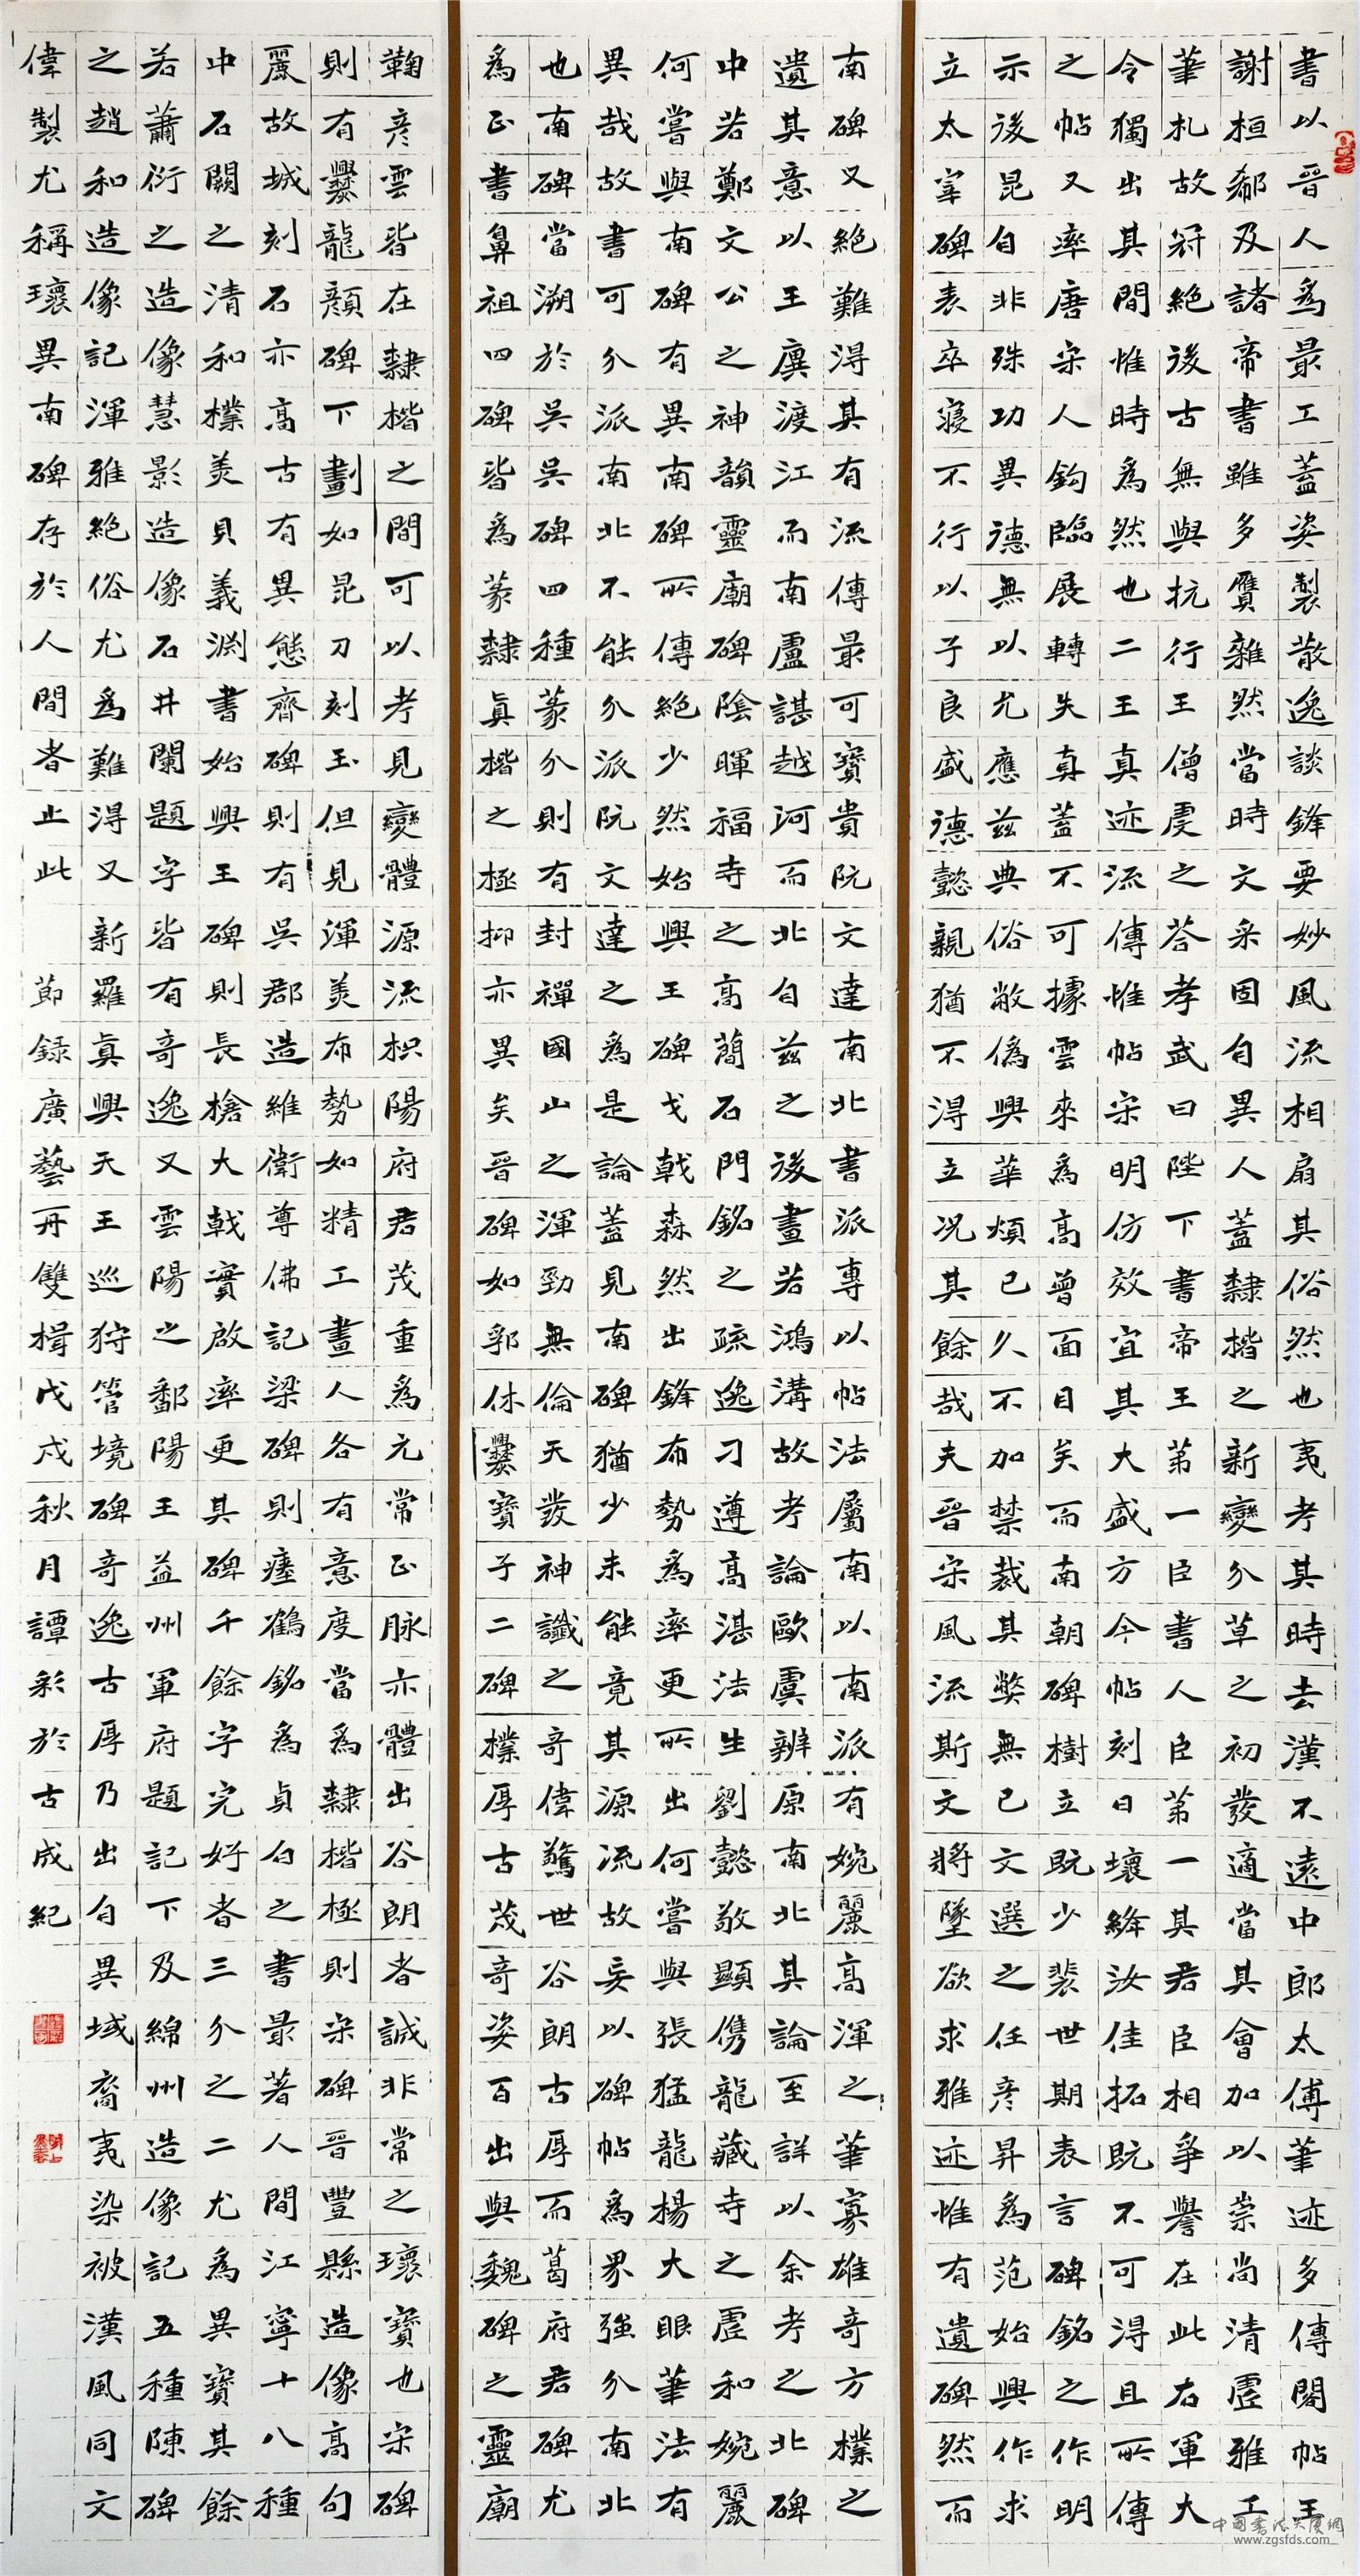 書以晉人爲最工蓋姿製散逸談鋒要妙風流相扇其俗然也夷考其時去漢不遠中郎太傅筆迹多傳閣帖王
謝桓郗及諸帝書雖多贋雜然當時文采固自異人蓋隸楷之新變分草之初發適當其會加以崇尚清虛雅工
筆札故冠絕後古無與抗行王僧虔之答孝武曰陛下書帝王第一臣書人臣第一其君臣相爭譽在此右軍大
令獨出其間惟時爲然也二王真迹流傳惟帖宋明仿效宜其大盛方今帖刻日壞絳汝佳拓既不可得且所傳
之帖又率唐宋人鈎臨展轉失真蓋不可據雲來爲高曾面目矣而南朝碑樹立既少裴世期表言碑銘之作明
示後昆自非殊功異德無以尤應茲典俗敝僞興華煩已久不加禁裁其弊無已文選之任彥昇爲范始興作求
立太宰碑表卒寢不行以子良盛德懿親猶不得立況其餘哉夫晉宋風流斯文將墜欲求雅迹惟有遺碑然而
南碑又絕難得其有流傳最可寶貴阮文達南北書派專以帖法屬南以南派有婉麗高渾之筆寡雄奇方樸之
遺其意以王廙渡江而南盧諶越河而北自茲之後畫若鴻溝故考論歐虞辨原南北其論至詳以余考之北碑
中若鄭文公之神韻靈廟碑陰暉福寺之高簡石門銘之疏逸刁遵高湛法生劉懿敬顯儁龍藏寺之虛和婉麗
何嘗與南碑有異南碑所傳絕少然始興王碑戈戟森然出鋒布勢爲率更所出何嘗與張猛龍楊大眼筆法有
異哉故書可分派南北不能分派阮文達之爲是論蓋見南碑猶少未能竟其源流故妄以碑帖爲界強分南北
也南碑當溯於吳吳碑四種篆分則有封禪國山之渾勁無倫天發神讖之奇偉驚世谷朗古厚而葛府君碑尤
爲正書鼻祖四碑皆爲篆隸真楷之極抑亦異矣晉碑如郛休爨寶子二碑樸厚古茂奇姿百出與魏碑之靈廟
鞠彥雲皆在隸楷之間可以考見變體源流枳陽府君茂重爲元常正脉亦體出谷朗者誠非常之瓌寶也宋碑
則有爨龍顏碑下劃如昆刀刻玉但見渾美布勢如精工畫人各有意度當爲隸楷極則宋碑晉豐縣造像高句
麗故城刻石亦高古有異態齊碑則有吳郡造維衛尊佛記梁碑則瘞鶴銘爲貞白之書最著人間江寧十八種
中石闕之清和樸美貝義淵書始興王碑則長槍大戟實啟率更其碑千餘字完好者三分之二尤爲異寶其餘
若蕭衍之造像慧影造像石井闌題字皆有奇逸又雲陽之鄱陽王益州軍府題記下及綿州造像記五種陳碑
之趙和造像記渾雅絕俗尤爲難得又新羅真興天王巡狩管境碑奇逸古厚乃出自異域裔夷染被漢風同文
偉製尤稱瓌異南碑存於人間者止此 節錄廣藝舟雙楫戊戌秋月譚彩於古成紀
中國書法大廈網
www.zgsfds.com